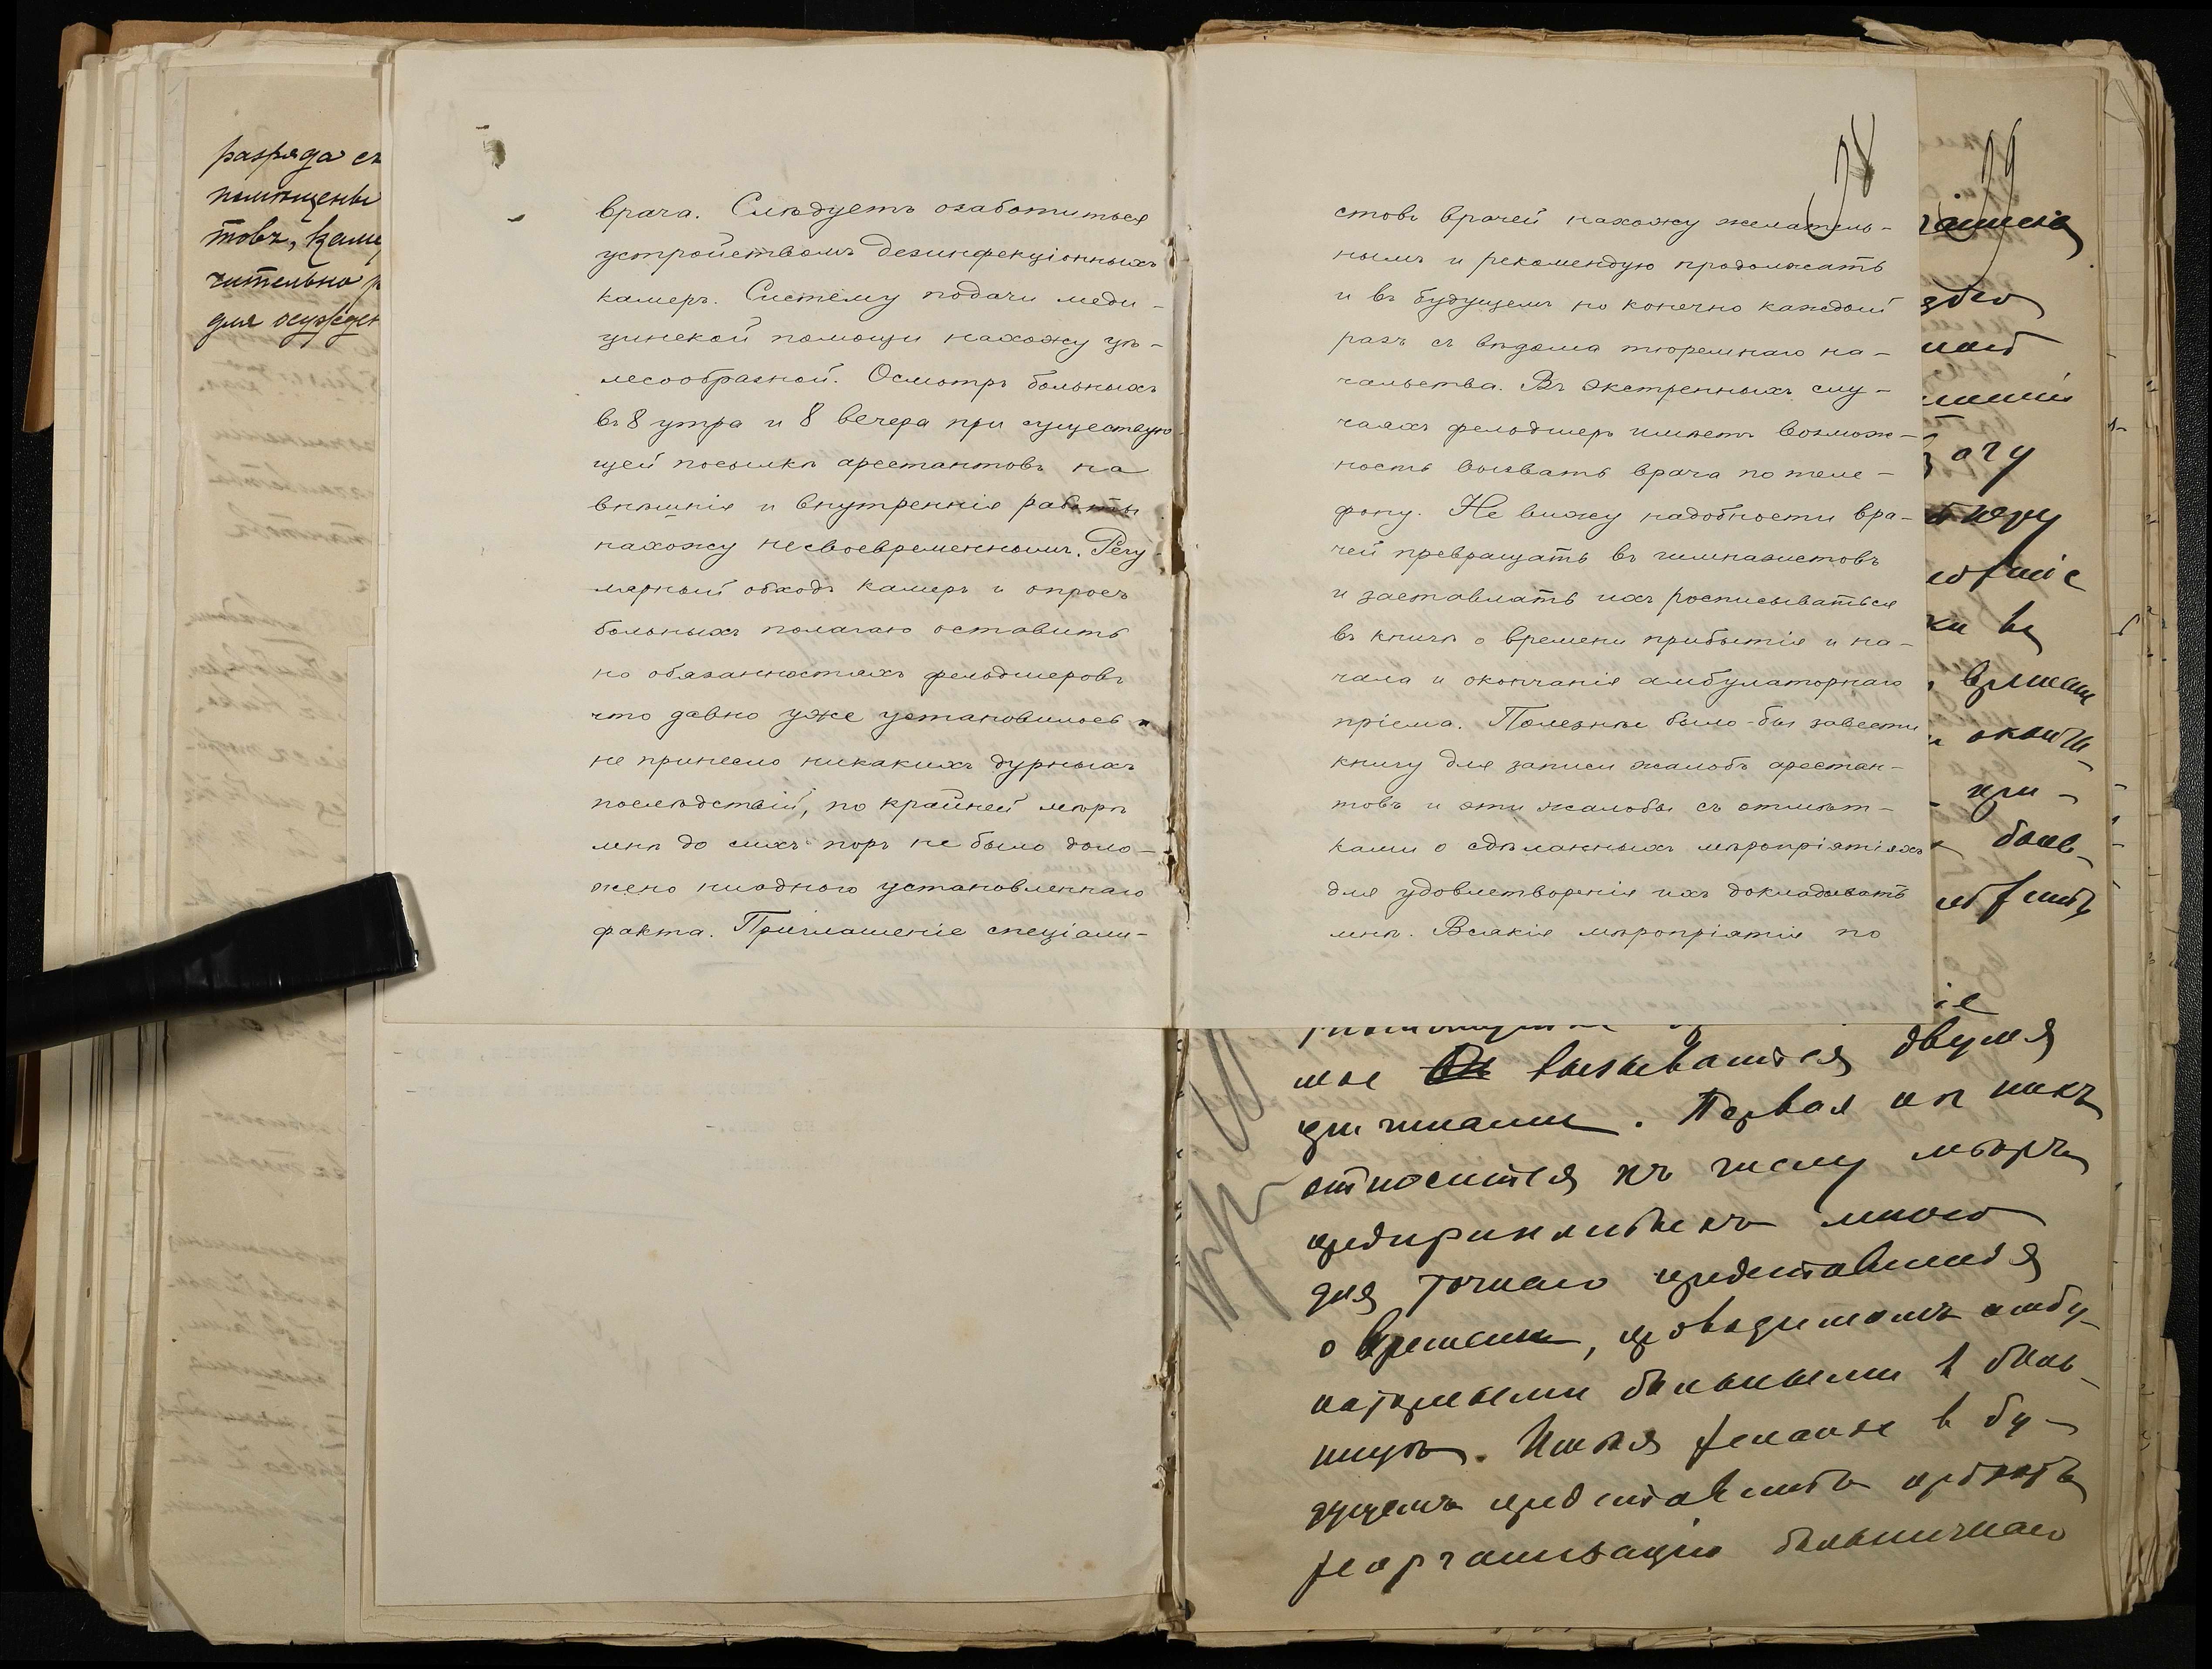 разряда съ
помѣщены
товъ, каме
чительно
для осужден
врача. Слѣдуетъ озаботиться
устройствомъ дезинфекціонныхъ
камеръ. Систему подачи меди-
цинской помощи нахожу цѣ-
лесообразной. Осмотръ больныхъ
въ 8 утра и 8 вечера при существую-
щей посылкѣ арестантовъ на
внѣшнія и внутреннія работы
нахожу несвоевременнымъ. Регу-
лярный обходъ камеръ и опросъ
больныхъ полагаю оставить
на обязанностяхъ фельдшеровъ
что давно уже установилось и
не принесло никакихъ дурныхъ
послѣдствій, по крайней мѣрѣ
мнѣ до сихъ поръ не было доло-
жено ниодного установленнаго
факта. Приглашеніе спеціали-
98
стовъ врачей нахожу желатель-
нымъ и рекомендую продолжать
и въ будущемъ но конечно каждый
разъ съ вѣдома тюремнаго на-
чальства. Въ экстренныхъ слу-
чаяхъ фельдшеръ имѣетъ возмож-
ность вызвать врача по теле-
фону. Не вижу надобности вра-
чей превращать въ гимназистовъ
и заставлять ихъ росписываться
въ книгѣ о времени прибытія и на-
чала и окончанія амбулаторнаго
пріема. Полезнѣе было-бы завести
книгу для записи жалобъ арестан-
товъ и эти жалобы съ отмѣт-
ками о сдѣланныхъ мѣропріятіяхъ
для удовлетворенія ихъ докладывать
мнѣ. Всякія мѣропріятія по
99
времени
оконча-
при-
боль-
ніе
мое вызывается двумя
причинами. Первая изъ нихъ
относится къ числу мѣръ
предпринятыхъ мною
для точнаго представленія
о времени, проводимомъ амбу-
латорными больными въ боль-
ницѣ. Имѣя желаніе въ бу-
дущемъ представить проэктъ
реорганизаціи больничнаго